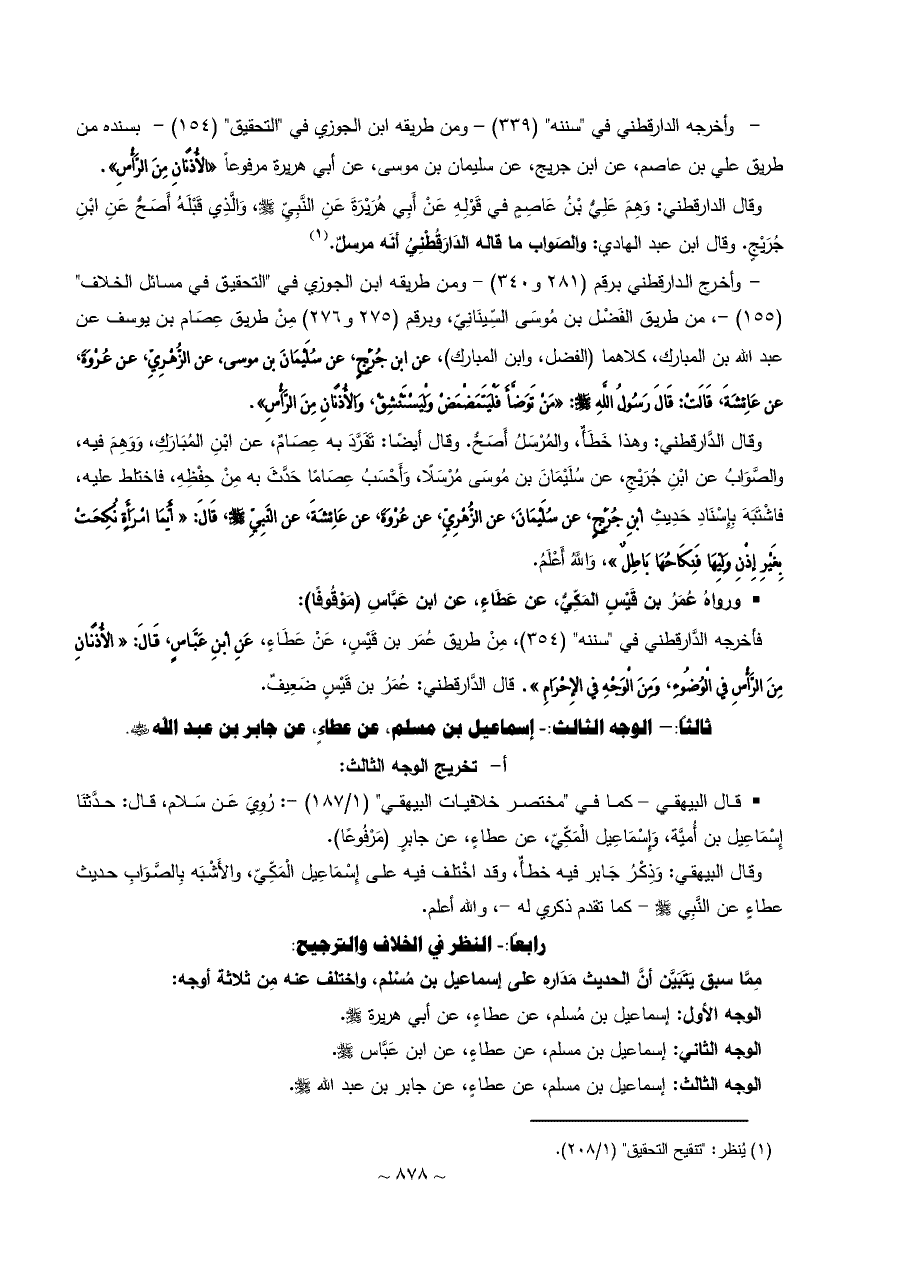 – وأخرجه الدارقطني في "سننه" (٣٣٩) – ومن طريقه ابن الجوزي في "التحقيق" (١٥٤) – بسنده من
طريق علي بن عاصم، عن ابن جريج، عن سليمان بن موسى، عن أبي هريرة مرفوعاً «الأُذُنَانِ مِنَ الرَّأْسِ».
وقال الدارقطني: وَهِمَ عَلِيُّ بْنُ عَاصِمٍ في قَوْلِهِ عَنْ أَبِي هُرَيْرَةَ عَنِ النَّبِيِّ ﷺ، وَالَّذِي قَبْلَهُ أَصَحُّ عَنِ ابْنِ
جُرَيْجٍ. وقال ابن عبد الهادي: والصَّواب ما قاله الدَارَقُطْنِيُ أنَه مرسلٌ.(١)
– وأخرج الدارقطني برقم (٢٨١ و٣٤٠) – ومن طريقه ابن الجوزي في "التحقيق في مسائل الخلاف"
(١٥٥) –، من طريق الفَضْل بن مُوسَى السِّينَانِيّ، وبرقم (٢٧٥ و٢٧٦) مِنْ طريق عِصَام بن يوسف عن
عبد الله بن المبارك، كلاهما (الفضل، وابن المبارك)، عن ابن جُرَيْجٍ، عن سُلَيْمَانَ بن موسى، عن الزُّهْرِيِّ، عن عُرْوَةَ،
عن عَائِشَةَ، قَالَتْ: قَالَ رَسُولُ اللَّهِ ﷺ: «مَنْ تَوَضَّأَ فَلْيَتَمَضْمَضْ وَلْيَسْتَنْشِقْ، وَالأُذُنَانِ مِنَ الرَّأْسِ».
وقال الدَّارقطني: وهذا خَطَأٌ، والمُرْسَلُ أَصَحُّ. وقال أيضًا: تَفَرَّدَ به عِصَامٌ، عن ابْنِ المُبَارَكِ، وَوَهِمَ فيه،
والصَّوَابُ عن ابْنِ جُرَيْجٍ، عن سُلَيْمَانَ بن مُوسَى مُرْسَلًا، وَأَحْسَبُ عِصَامًا حَدَّثَ به مِنْ حِفْظِهِ، فاختلط عليه،
فاشْتَبَهَ بِإِسْنَادِ حَدِيثِ ابْنِ جُرَيْجٍ، عن سُلَيْمَانَ، عن الزُّهْرِيِّ، عن عُرْوَةَ، عن عَائِشَةَ، عن النَّبِيِّ ﷺ، قَالَ: «أَيُّمَا امْرَأَةٍ نُكِحَتْ
بِغَيْرِ إِذْنِ وَلِيِّهَا فَنِكَاحُهَا بَاطِلٌ»، وَاللَّهُ أَعْلَمُ.
▪ ورواهُ عُمَرُ بن قَيْسٍ المَكِّيُّ، عن عَطَاءٍ، عن ابن عَبَّاسٍ (مَوْقُوفًا):
فأخرجه الدَّارقطني في "سننه" (٣٥٤)، مِنْ طريق عُمَر بن قَيْسٍ، عَنْ عَطَاءٍ، عَنِ ابْنِ عَبَّاسٍ، قَالَ: «الأُذُنَانِ
مِنَ الرَّأْسِ فِي الْوُضُوءِ، وَمِنَ الْوَجْهِ فِي الإِحْرَامِ». قال الدَّارقطني: عُمَرُ بن قَيْسٍ ضَعِيفٌ.
ثالثاً:– الوجه الثالث:- إسماعيل بن مسلم، عن عطاءٍ، عن جابر بن عبد الله ﷺ.
أ– تخريج الوجه الثالث:
▪ قال البيهقي – كما في "مختصر خلافيات البيهقي" (١٨٧/١) –: رُوِيَ عَن سَلام، قال: حدَّثنَا
إِسْمَاعِيل بن أُميَّة، وَإِسْمَاعِيل الْمَكِّيّ، عن عطاءٍ، عن جابرٍ (مَرْفُوعًا).
وقال البيهقي: وَذِكْرُ جَابر فيه خطأٌ، وقد اخْتلف فيه على إِسْمَاعِيل الْمَكِّيّ، والأَشْبَه بِالصَّوَابِ حديث
عطاءٍ عن النَّبِي ﷺ – كما تقدم ذكري له –، والله أعلم.
رابعاً:- النظر في الخلاف والترجيح:
مِمَّا سبق يَتَبَيَّن أنَّ الحديث مَدَاره على إسماعيل بن مُسْلم، واختلف عنه مِن ثلاثة أوجه:
الوجه الأول: إسماعيل بن مُسلم، عن عطاءٍ، عن أبي هريرة ﷺ.
الوجه الثاني: إسماعيل بن مسلم، عن عطاءٍ، عن ابن عَبَّاس ﷺ.
الوجه الثالث: إسماعيل بن مسلم، عن عطاءٍ، عن جابر بن عبد الله ﷺ.
(١) يُنظر: "تنقيح التحقيق" (٢٠٨/١).
~ ٨٧٨ ~